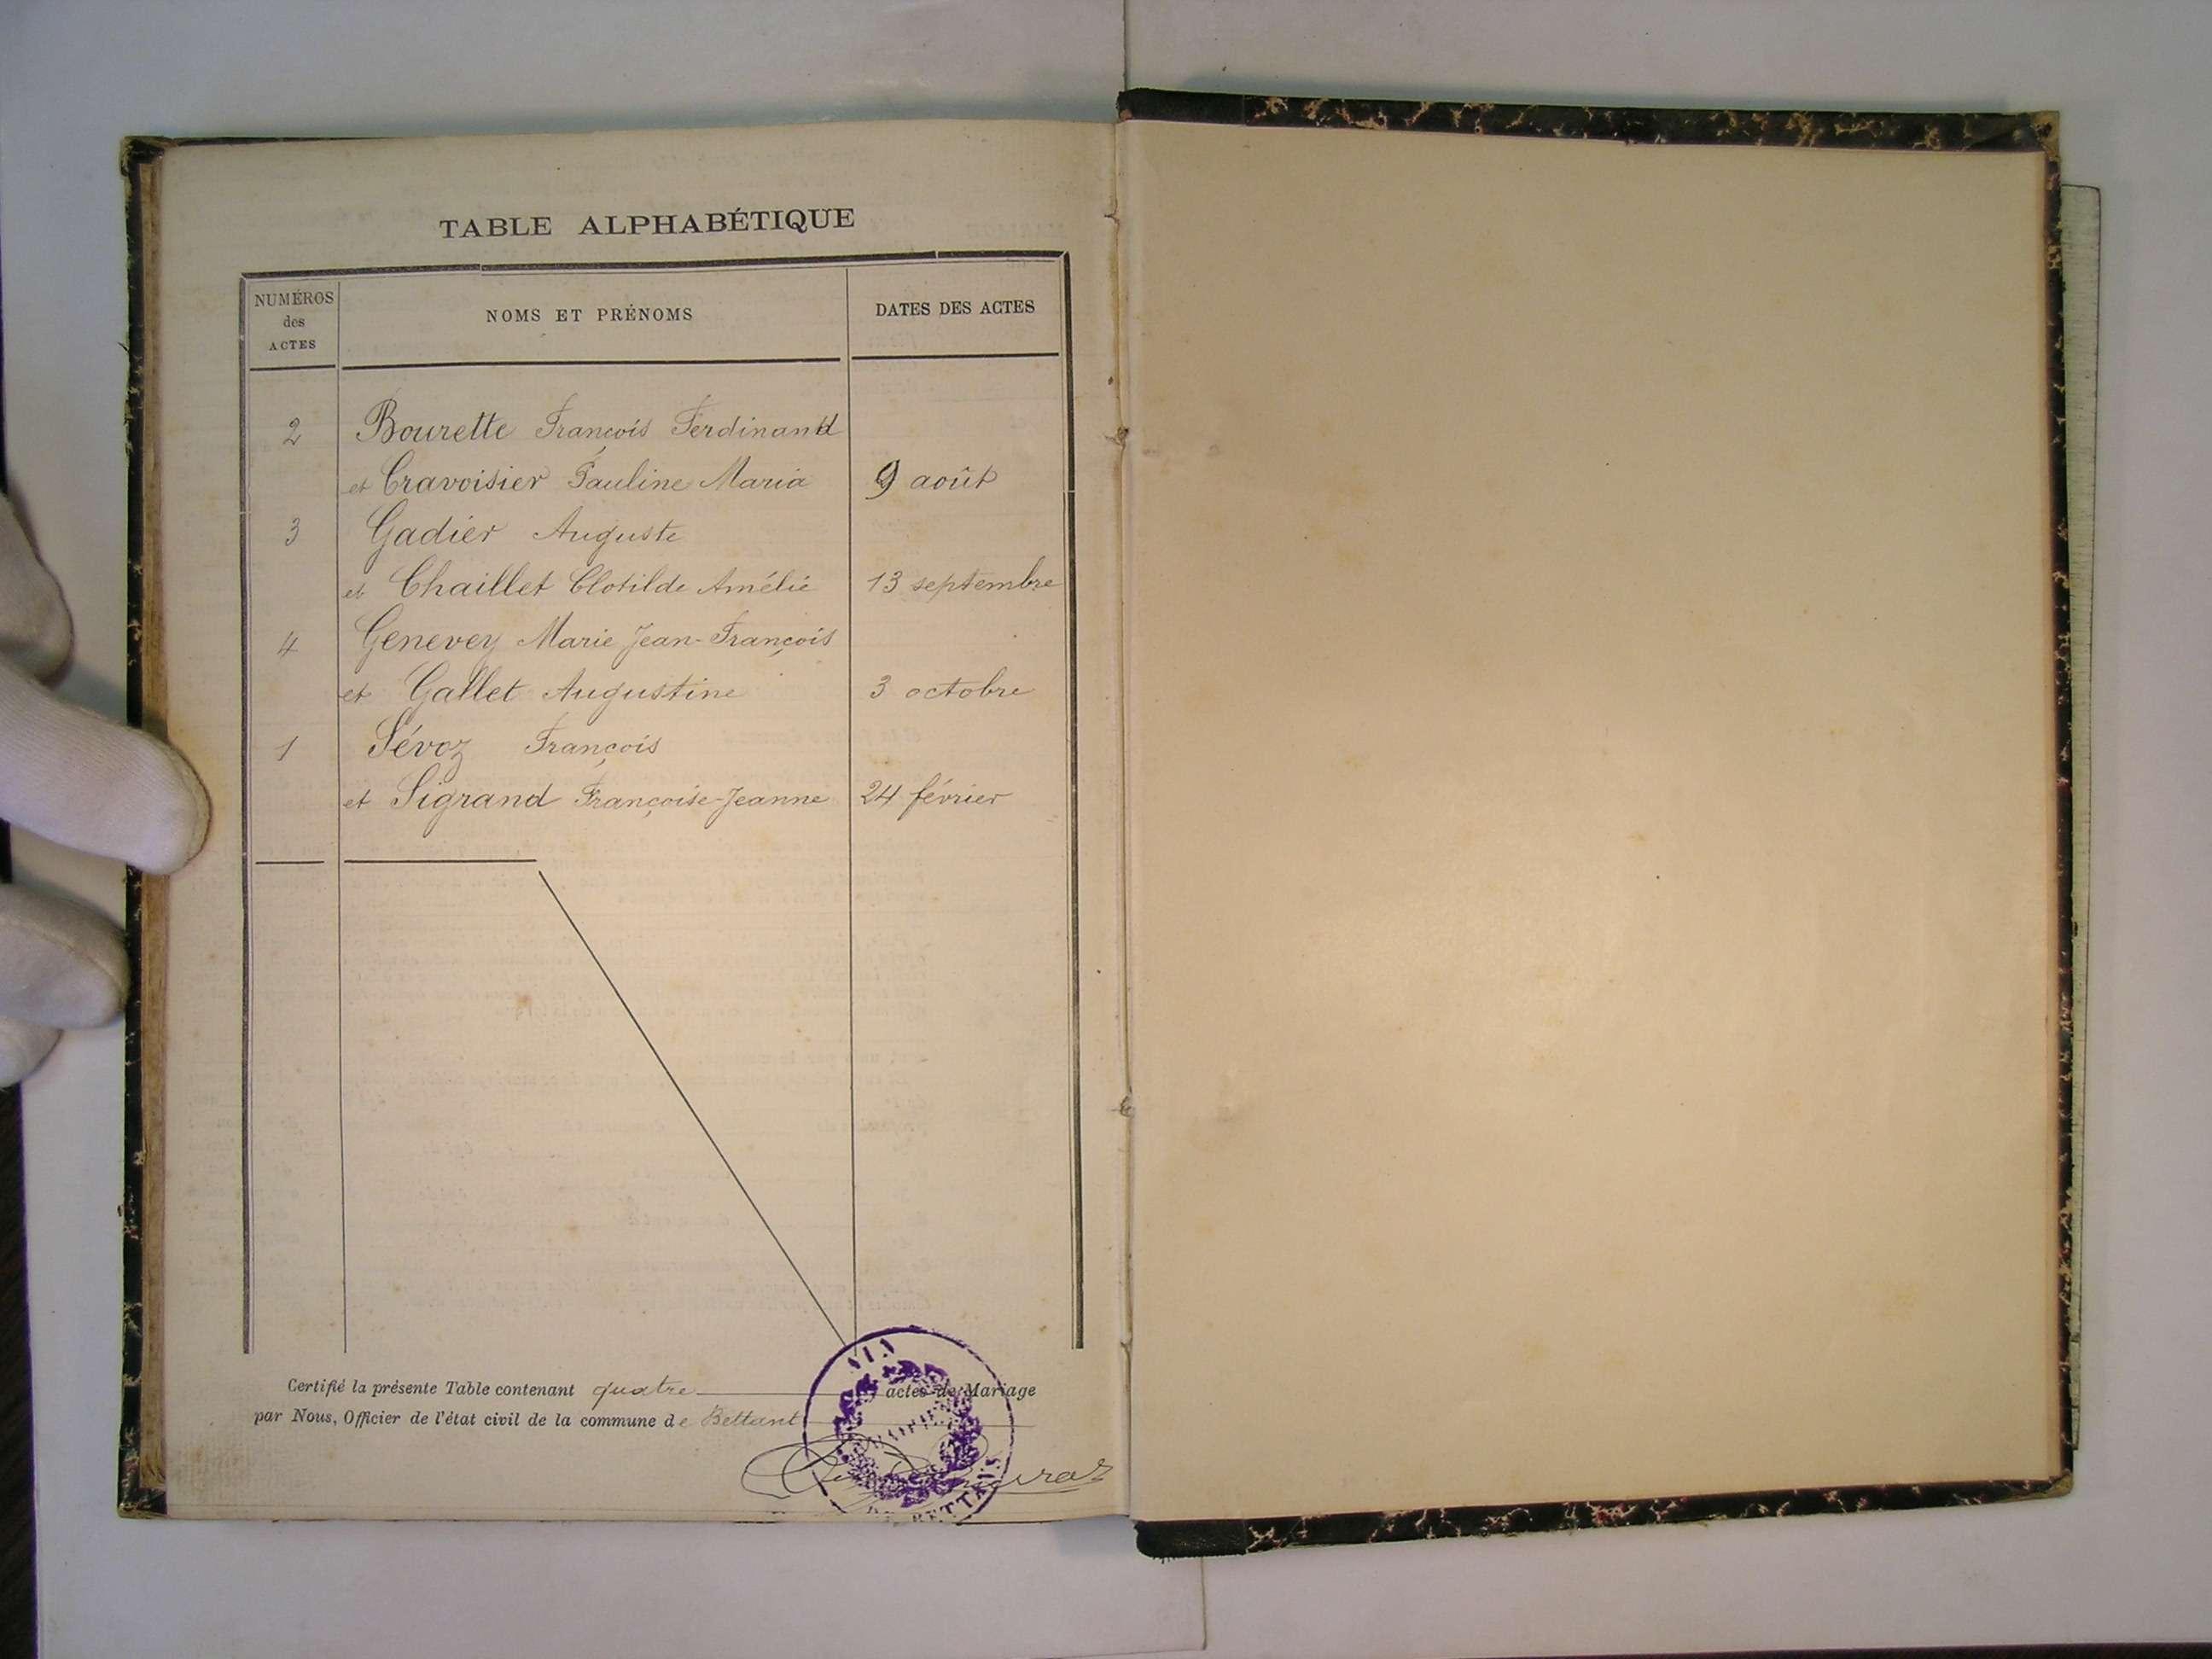 TABLE ALPHABÉTIQUE
NUMÉROS
des
ACTES
NOMS ET PRÉNOMS
DATES DES ACTES
2 Bourette François Ferdinand
et Cravoisier Pauline Maria 9 août
3 Gadier Auguste
et Chaillet Clotilde Amélie 13 septembre
4 Genevey Marie Jean-François
et Gallet Augustine 3 octobre
1 Sévoz François
et Sigrand Françoise-Jeanne 24 février
Certifié la présente Table contenant quatre actes de Mariage
par Nous, Officier de l'état civil de la commune de Bettant
AIN
MAIRIE
DE BETTANT